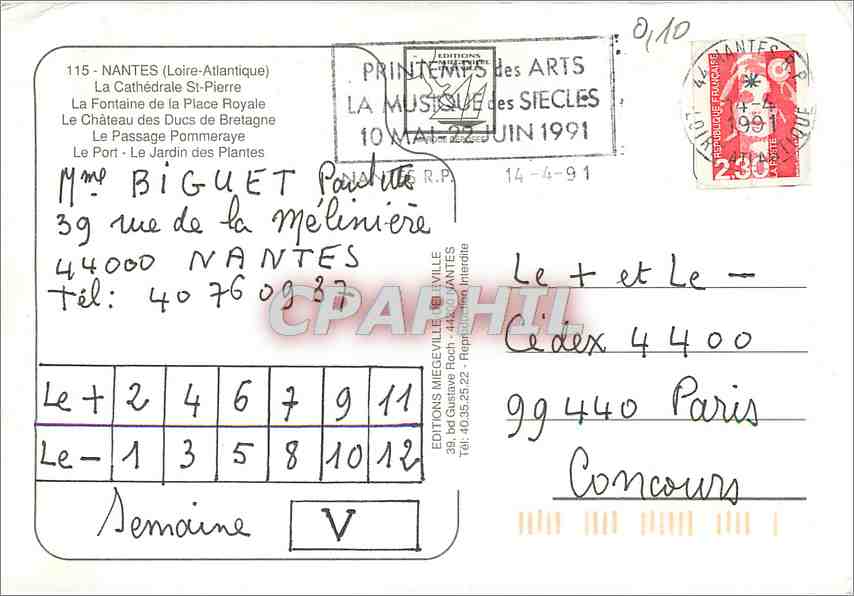 0,10
115 - NANTES (Loire-Atlantique)
La Cathédrale St-Pierre
La Fontaine de la Place Royale
Le Château des Ducs de Bretagne
Le Passage Pommeraye
Le Port - Le Jardin des Plantes
EDITIONS
MIEGEVILLE
PRINTEMPS des ARTS
LA MUSIQUE des SIECLES
10 MAI-22 JUIN 1991
NANTES R.P. 14-4-91
44 NANTES R.P.
14-4
1991
LOIRE ATLANTIQUE
REPUBLIQUE FRANÇAISE
2,30
LA POSTE
Mme BIGUET Paulette
39 rue de la Mélinière
44000 NANTES
Tél: 40 76 09 37
CPAPHIL
EDITIONS MIEGEVILLE DELEVILLE
39, bd Gustave Roch - 44200 NANTES
Tél: 40.35.25.22 - Reproduction Interdite
Le + et Le -
Cédex 4400
99440 Paris
Concours
Le + 2 4 6 7 9 11
Le - 1 3 5 8 10 12
Semaine V